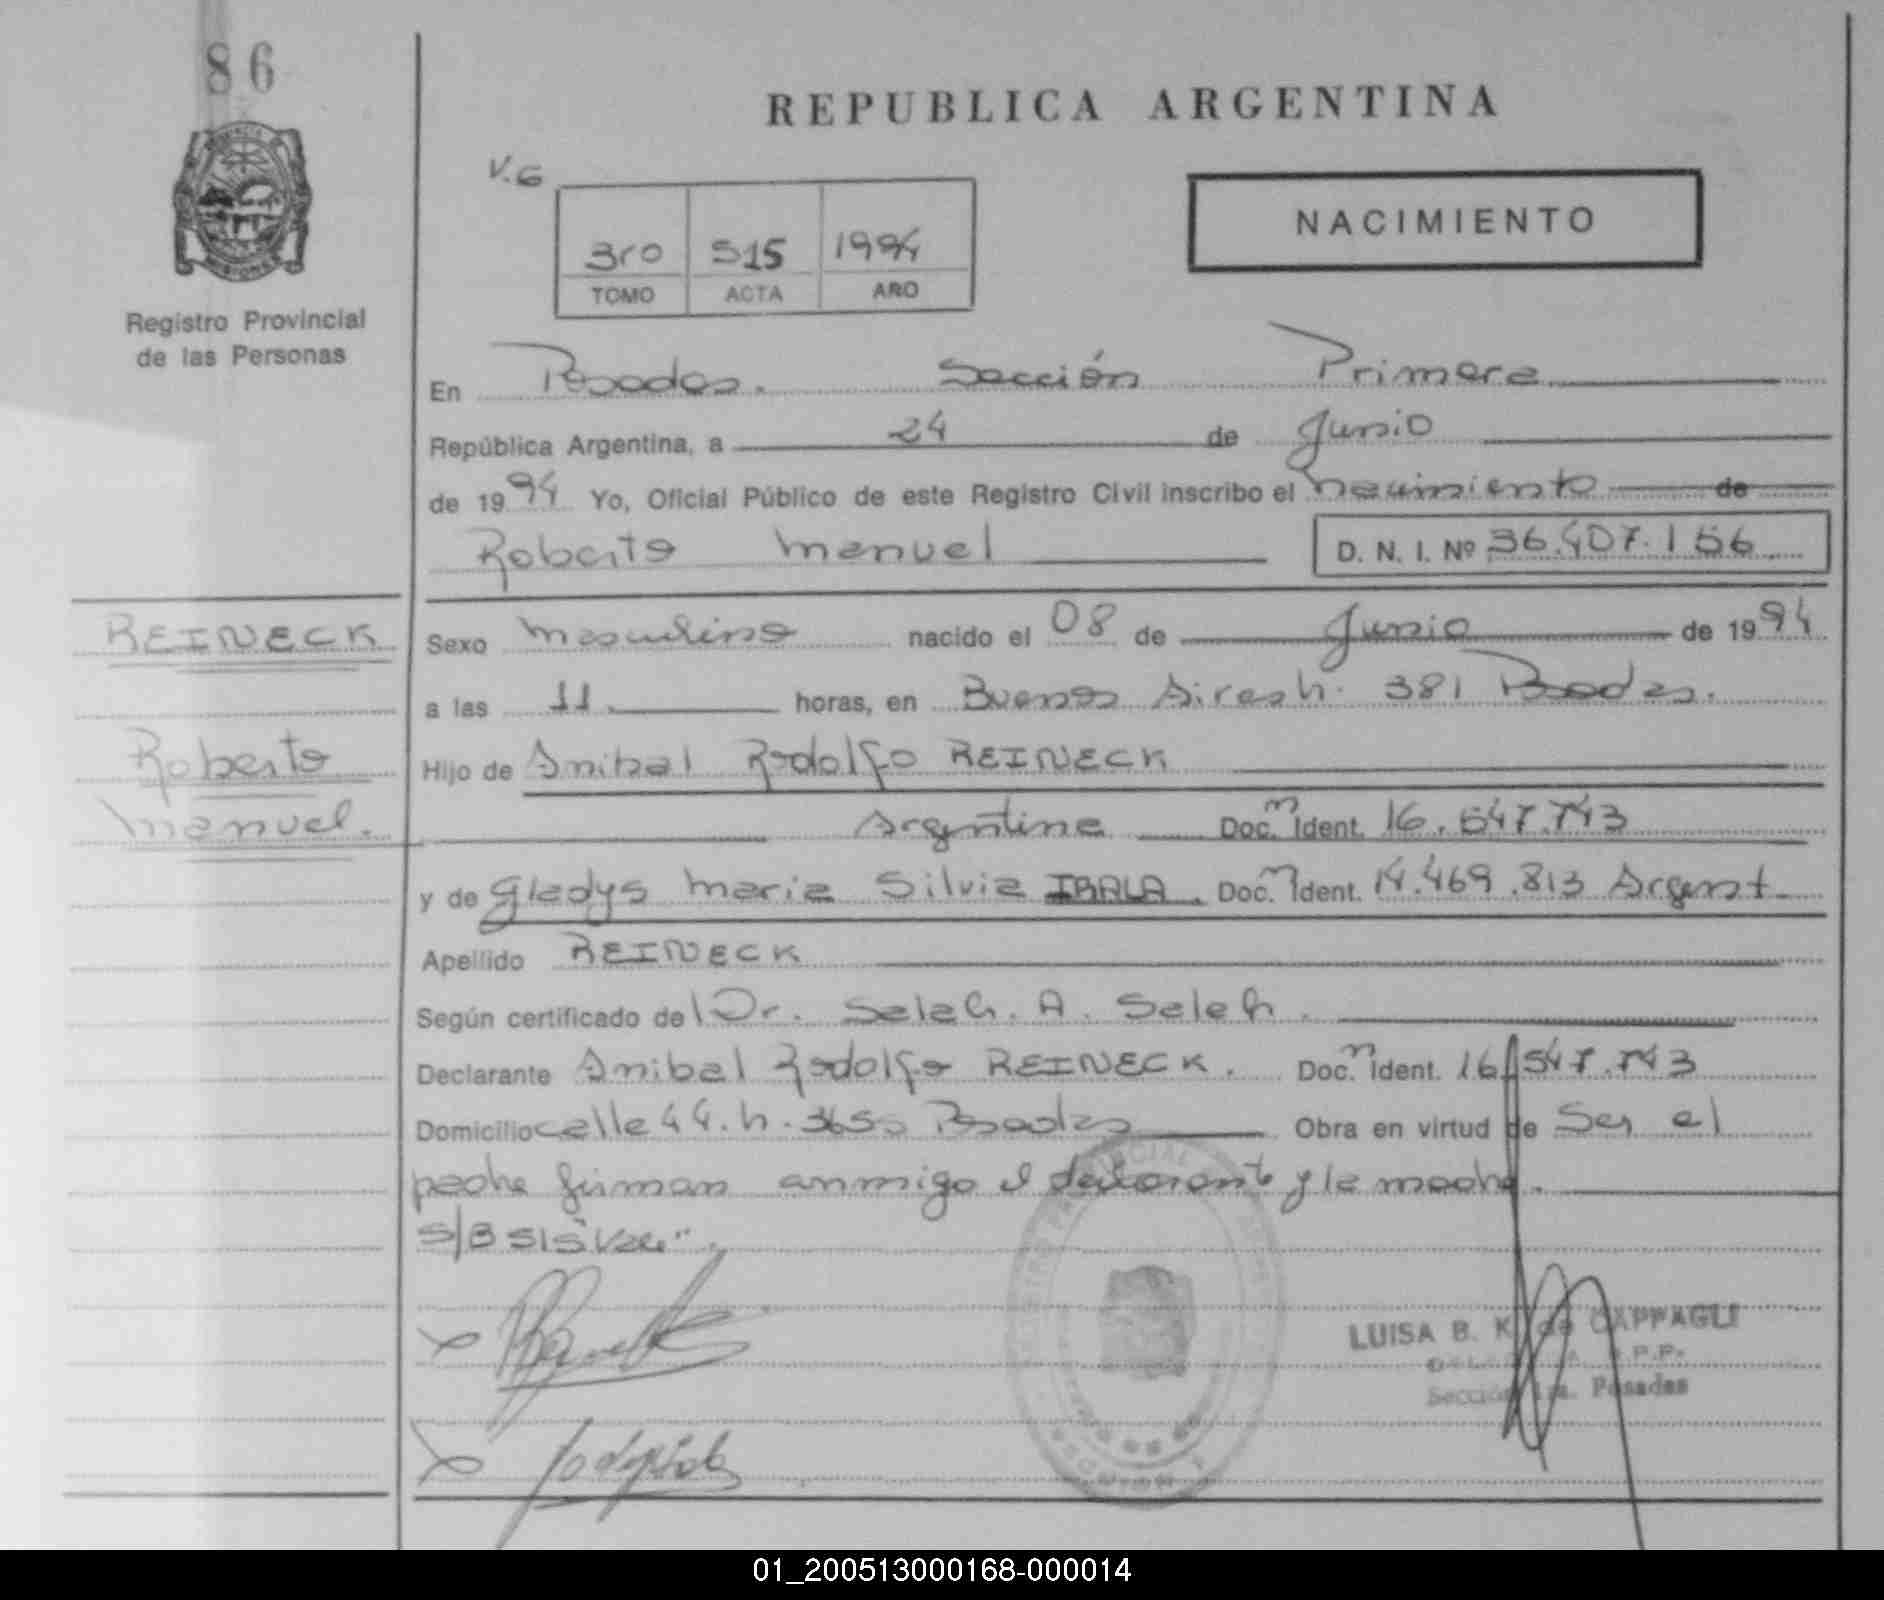 86
REPUBLICA ARGENTINA
V.G
3ro 515 1994
TOMO ACTA AÑO
NACIMIENTO
Registro Provincial
de las Personas
En Posadas. Sección Primera
República Argentina, a 24 de Junio
de 1994 Yo, Oficial Público de este Registro Civil inscribo el nacimiento de
Roberto Manuel D. N. I. Nº 36.407.156
REINECK
Sexo Masculino nacido el 08 de Junio de 1994
a las 11. horas, en Buenos Aires h. 381 Posadas.
Roberto
Hijo de Anibal Rodolfo REINECK
Manuel.
Argentina Doc.m Ident. 16.547.743
y de Gladys Maria Silvia IBALA. Doc.n Ident. 14.469.813 Argent.
Apellido REINECK
Según certificado del Dr. Saleh. A. Saleh.
Declarante Anibal Rodolfo REINECK. Doc.m Ident. 16.547.743
Domicilio calle 44. h. 3655 Posadas Obra en virtud de Ser el
padre firman conmigo el declarante y la madre.
S/B 515 Vale".
LUISA B. K. de CAPPAGLI
Sección 1ra. Posadas
01_200513000168-000014